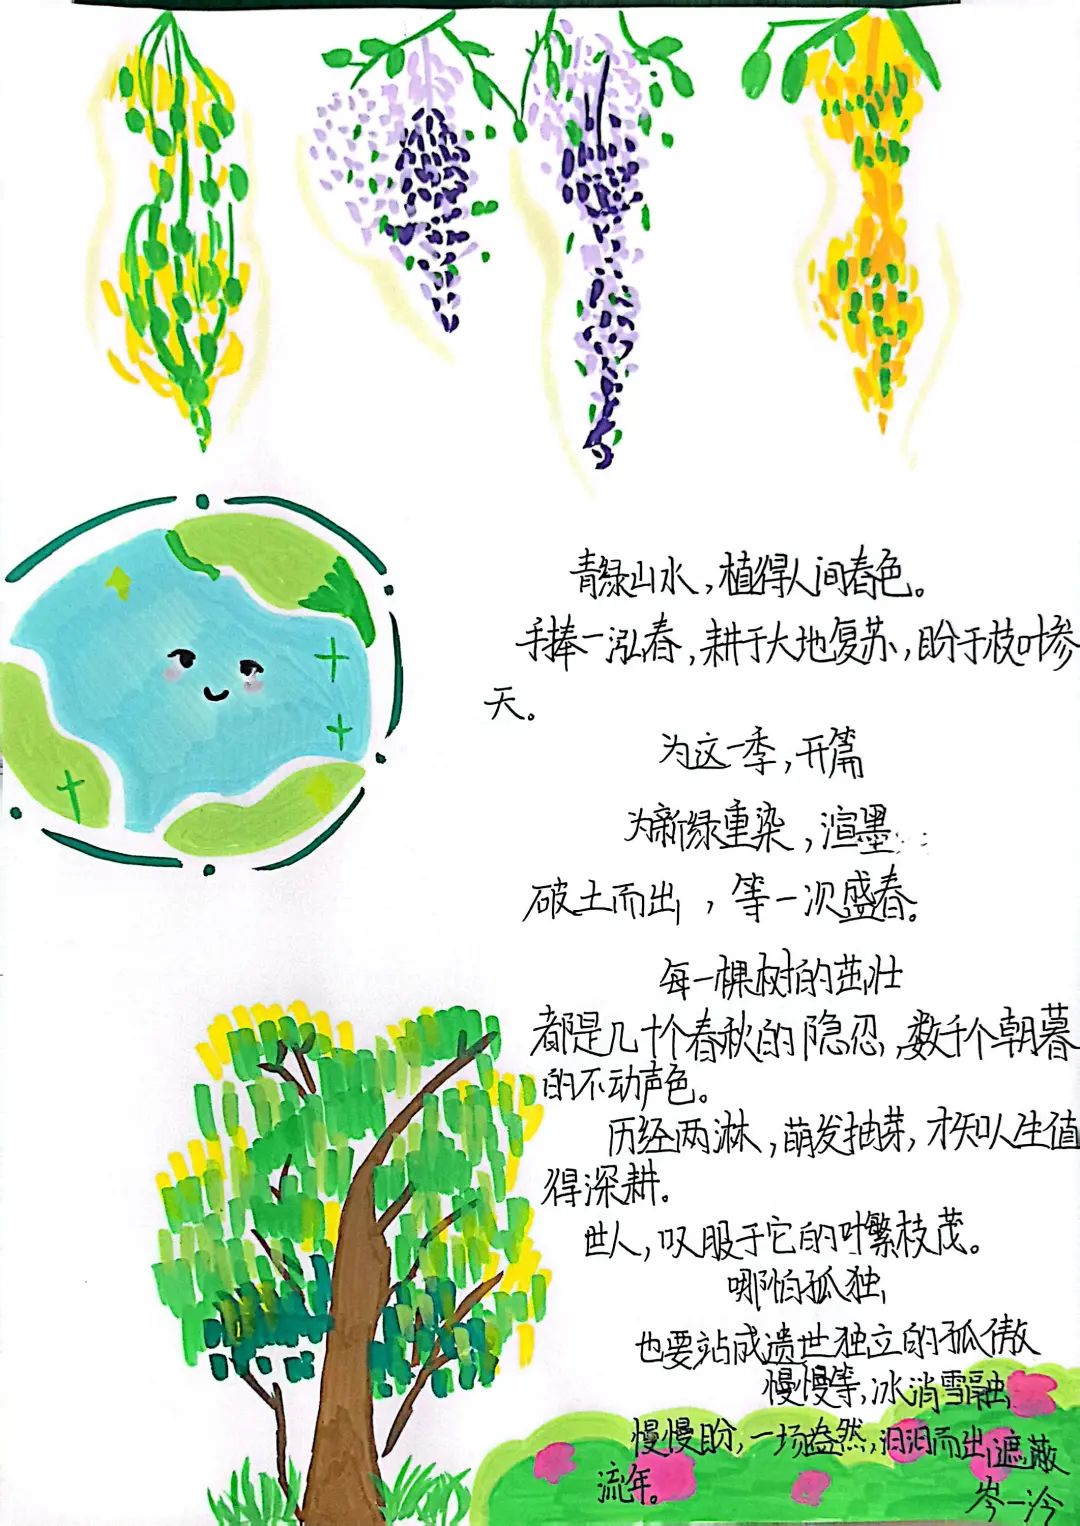 青绿山水，植得人间春色。
手捧一泓春，耕于大地复苏，盼于枝叶参
天。
为这一季，开篇
为新绿重染，渲墨
破土而出，等一次盛春。
每一棵树的茁壮
都是几十个春秋的隐忍，数千个朝暮
的不动声色。
历经雨淋，萌发抽芽，才知人生值
得深耕。
世人，叹服于它的叶繁枝茂。
哪怕孤独，
也要站成遗世独立的孤傲
慢慢等，冰消雪融
慢慢盼，一场盎然，汩汩而出，遮蔽
流年。
岑一汵